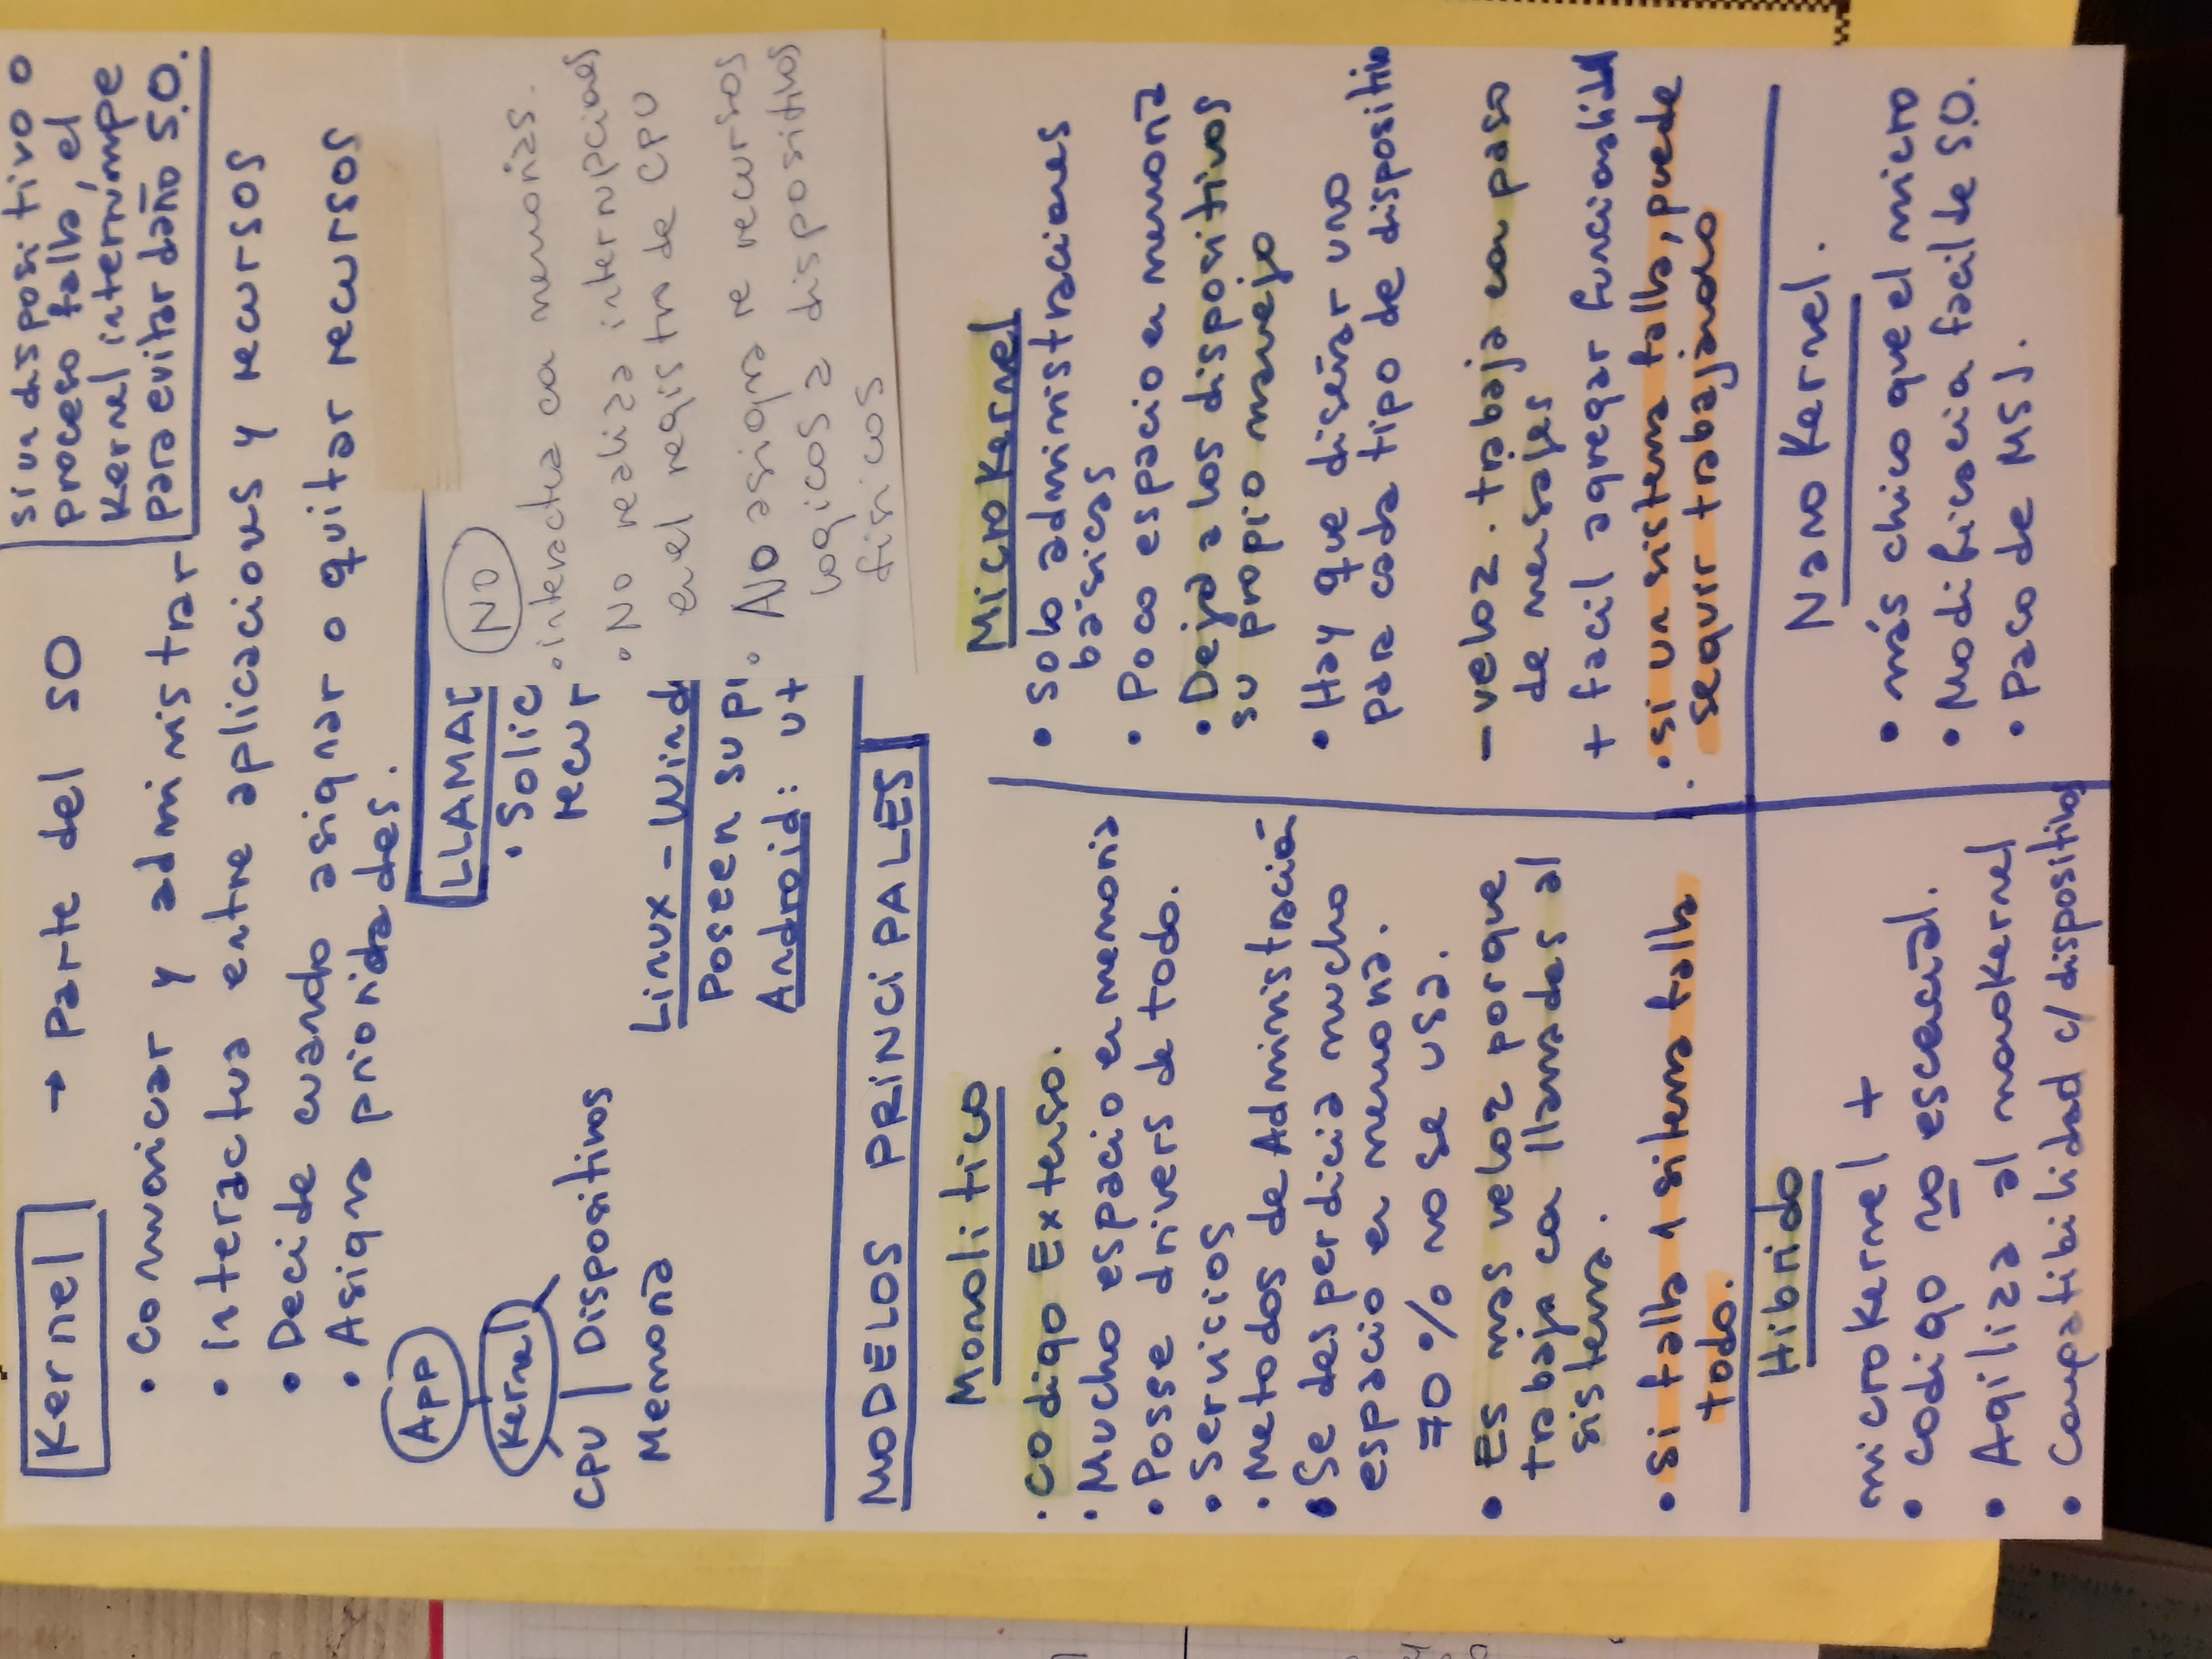 Kernel → Parte del SO
si un dispositivo o
proceso falla, el
Kernel interrumpe
para evitar daño S.O.
• Comunicar y administrar
• Interactua entre aplicaciones y recursos
• Decide cuando asignar o quitar recursos
• Asigna prioridades.
App
Kernel
CPU | Dispositivos
Memoria
LLAMAD
• Solic
recur
Linux - Wind
Poseen su pr
Android: ut
NO
• interactua con memorias.
• No realiza interrupciones
en el registro de CPU
• No asigna re recursos
logicos a dispositivos
fisicos
MODELOS PRINCIPALES
Monolitico
• codigo Extenso.
• Mucho espacio en memoria
• Posse drivers de todo.
• servicios
• Metodos de Administración
• Se desperdicia mucho
espacio en memoria.
70% no se usa.
• Es mas veloz porque
trabaja con llamadas al
sistema.
• si falla 1 sitema falla
todo.
MicroKernel
• solo administraciones
básicas
• Poco espacio en memoria
• Deja a los dispositivos
su propio manejo
• Hay que diseñar uno
para cada tipo de dispositivo
- veloz. trabaja con paso
de mensajes
+ facil agregar funcionalidad
• si un sistema falla, puede
seguir trabajando
Hibrido
microKernel +
• codigo no escencial.
• Agiliza al monoKernel
• Compatibilidad c/ dispositivos
NanoKernel.
• más chico que el micro
• Modificacion facil de S.O.
• Paso de MSJ.